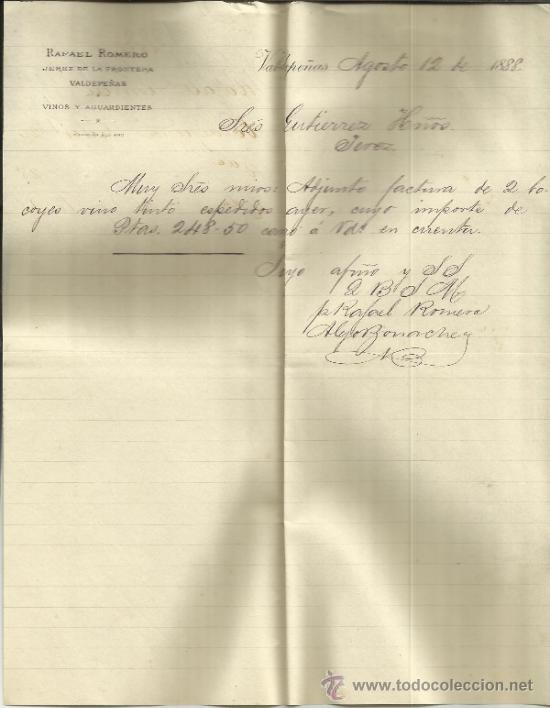 RAFAEL ROMERO
JEREZ DE LA FRONTERA
VALDEPEÑAS
VINOS Y AGUARDIENTES
Valdepeñas Agosto 12 de 1888.
Sres Gutierrez Hños.
Jerez
Muy Sres mios: Adjunto factura de 2 bo-
coyes vino tinto espedidos ayer, cuyo importe de
Ptas. 248.50 cargo á Vds en cuenta.
Suyo afmo y S S
Q B S M
p Rafael Romero
Alejo Bonache
todocoleccion
www.todocoleccion.net